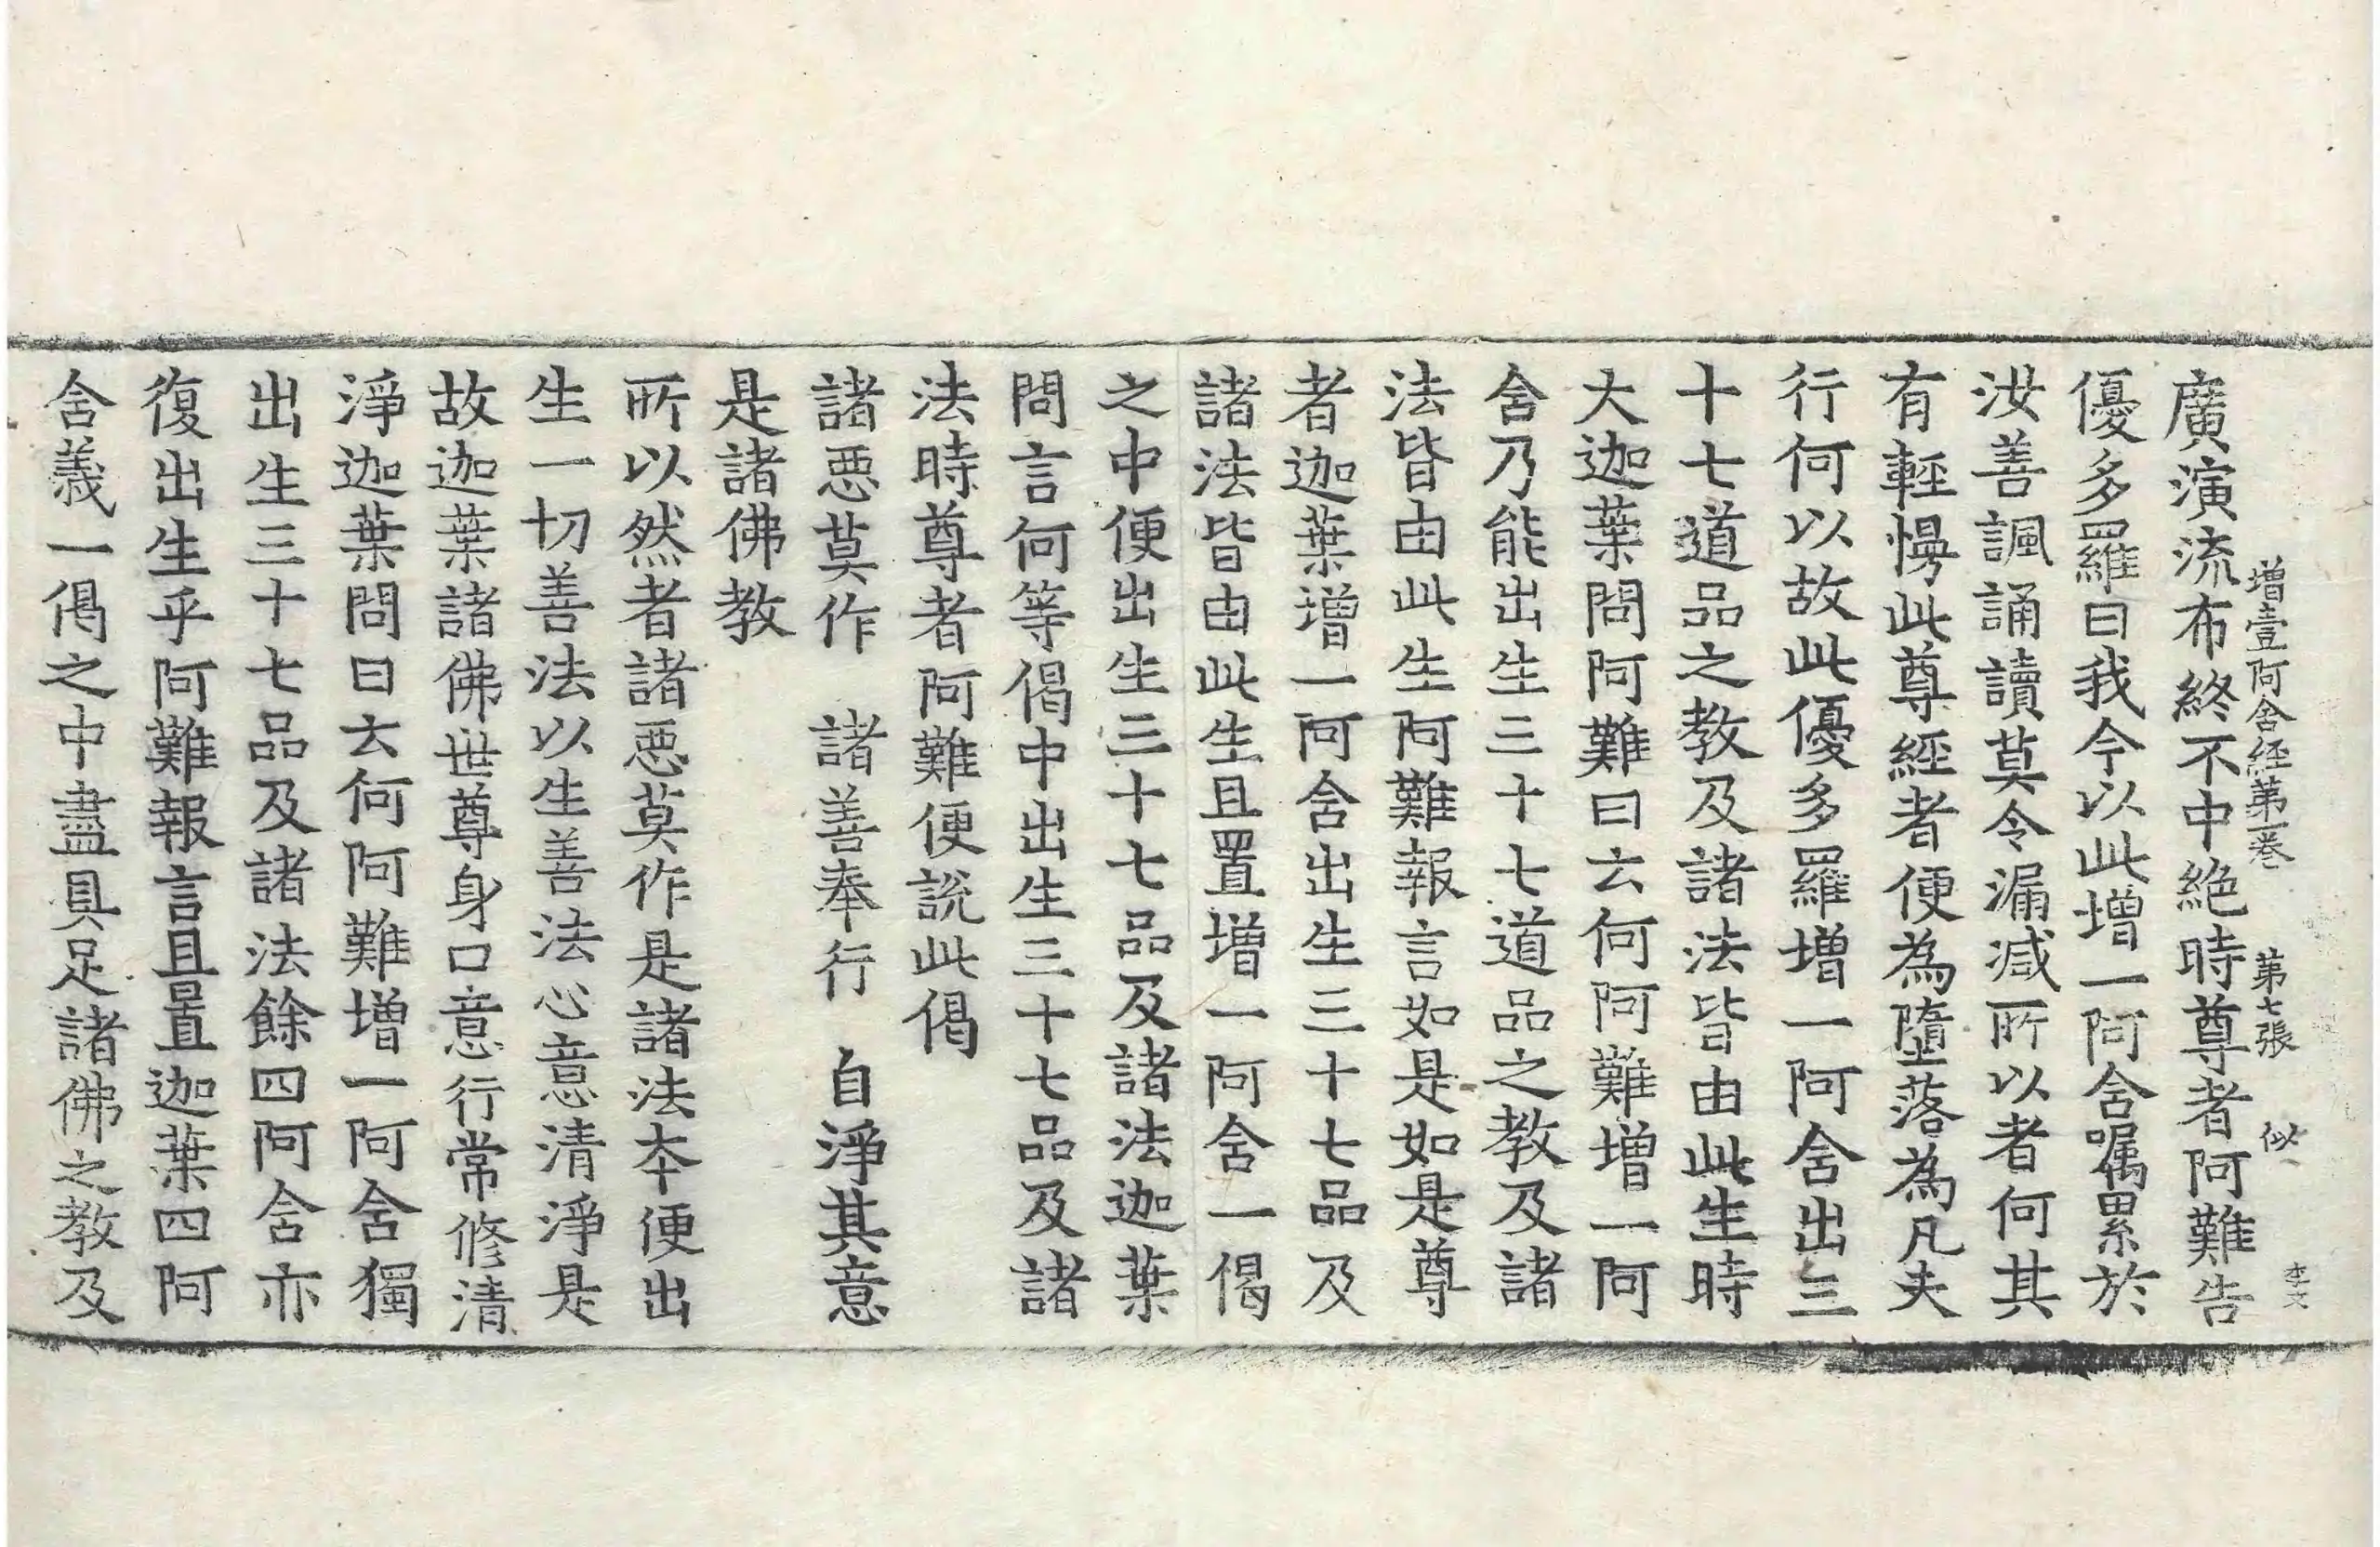 增壹阿含経第一巻　第七張　似　李文
廣演流布終不中絶時尊者阿難告
優多羅曰我今以此增一阿含囑累於
汝善諷誦讀莫令漏减所以者何其
有輕慢此尊經者便為墮落為凡夫
行何以故此優多羅增一阿含出三
十七道品之教及諸法皆由此生時
大迦葉問阿難曰云何阿難增一阿
含乃能出生三十七道品之教及諸
法皆由此生阿難報言如是如是尊
者迦葉增一阿含出生三十七品及
諸法皆由此生且置增一阿含一偈
之中便出生三十七品及諸法迦葉
問言何等偈中出生三十七品及諸
法時尊者阿難便說此偈
諸惡莫作　諸善奉行　自淨其意
是諸佛教
所以然者諸惡莫作是諸法本便出
生一切善法以生善法心意清淨是
故迦葉諸佛世尊身口意行常修清
淨迦葉問曰云何阿難增一阿含獨
出生三十七品及諸法餘四阿含亦
復出生乎阿難報言且置迦葉四阿
含義一偈之中盡具足諸佛之教及